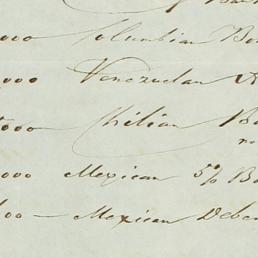 000 Columbian Bo
,000 Venezuelan
000 Chilian Bo
,000 Mexican 5% Bo
00 – Mexican Deben